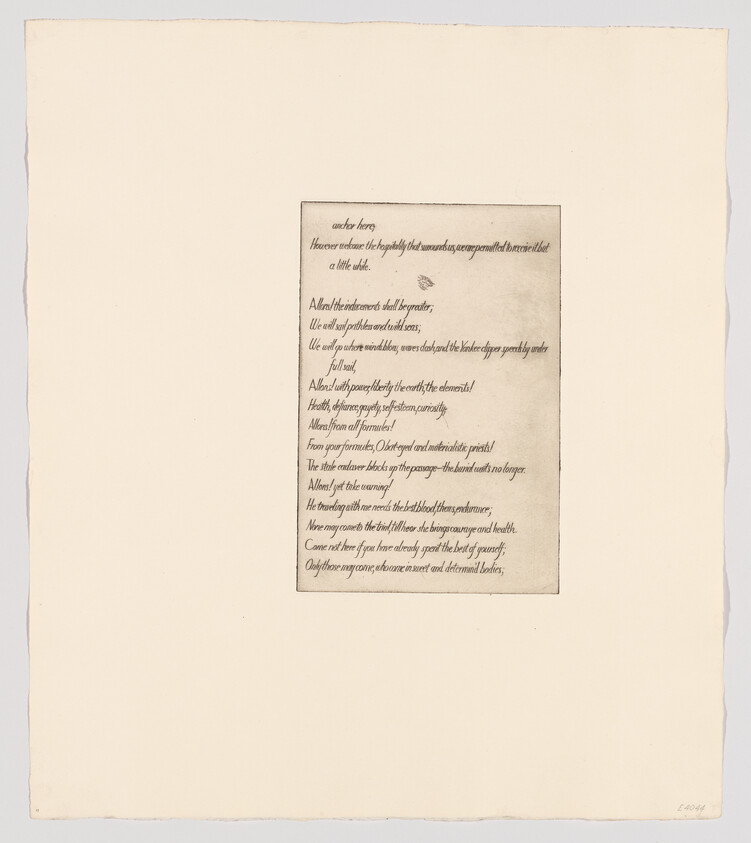 anchor here,
However welcome the hospitality that surrounds us, we are permitted to receive it but
a little while.
Allons! the inducements shall be greater;
We will sail pathless and wild seas;
We will go where winds blow, waves dash, and the Yankee clipper speeds by under
full sail,
Allons! with power, liberty the earth, the elements!
Health, defiance, gayety, self-esteem, curiosity;
Allons! from all formules!
From your formules, O bat-eyed and materialistic priests!
The stale cadaver blocks up the passage—the burial waits no longer.
Allons! yet take warning!
He traveling with me needs the best blood, thews, endurance;
None may come to the trial, till he or she brings courage and health.
Come not here if you have already spent the best of yourself;
Only those may come, who come in sweet and determin'd bodies;